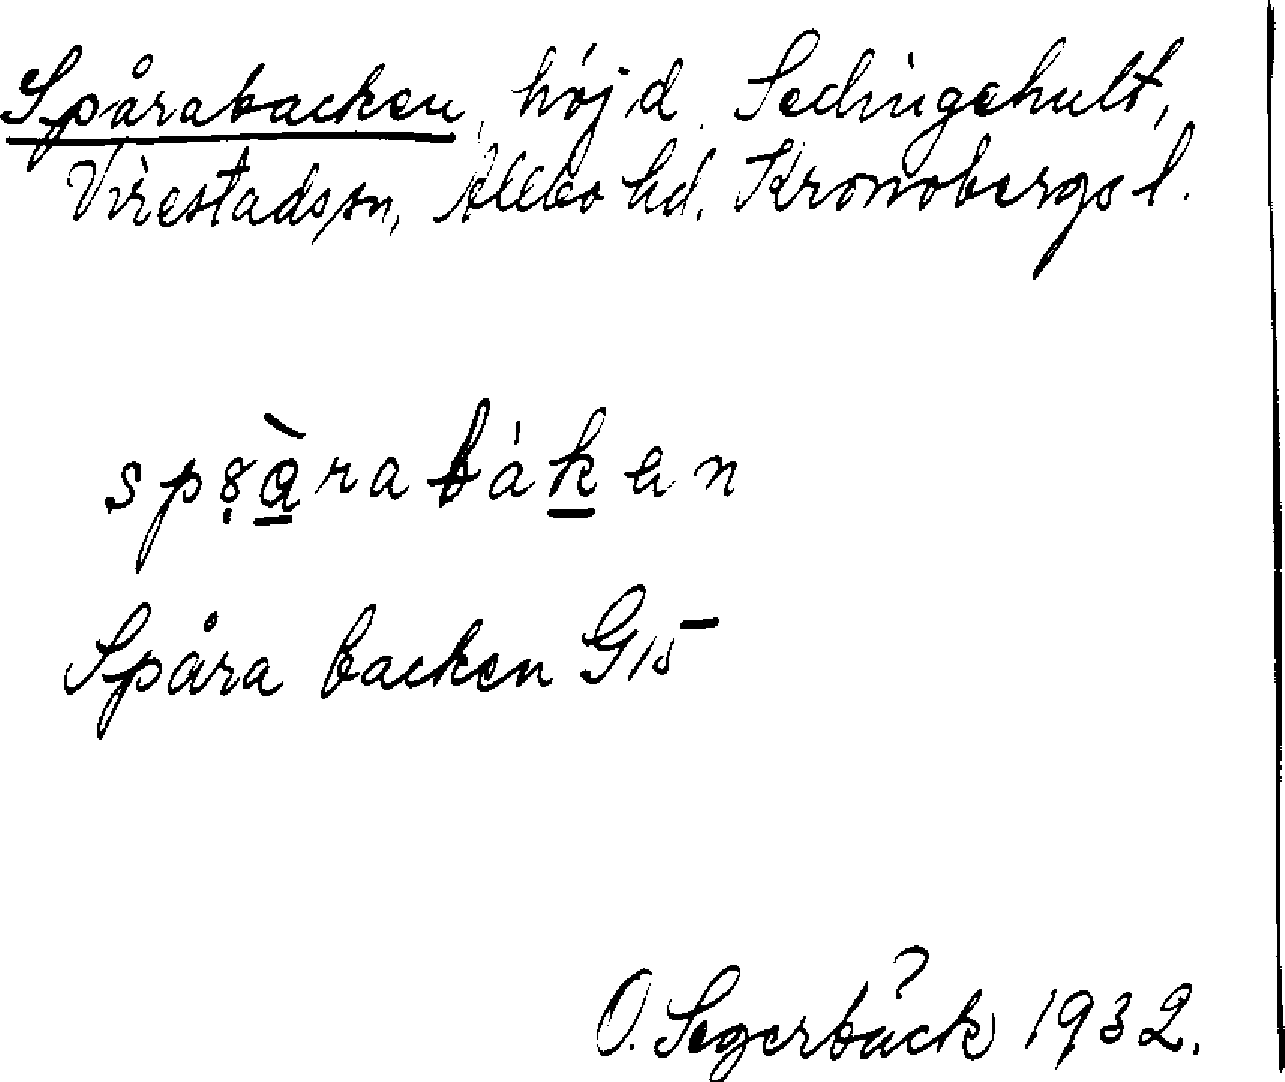 Spårabacken, höjd, Sedingehult,
Virestads sn, Allbo hd. Kronobergs l.
spṣàrabáken
Spåra backen G15
O. Segerbäck 1932.